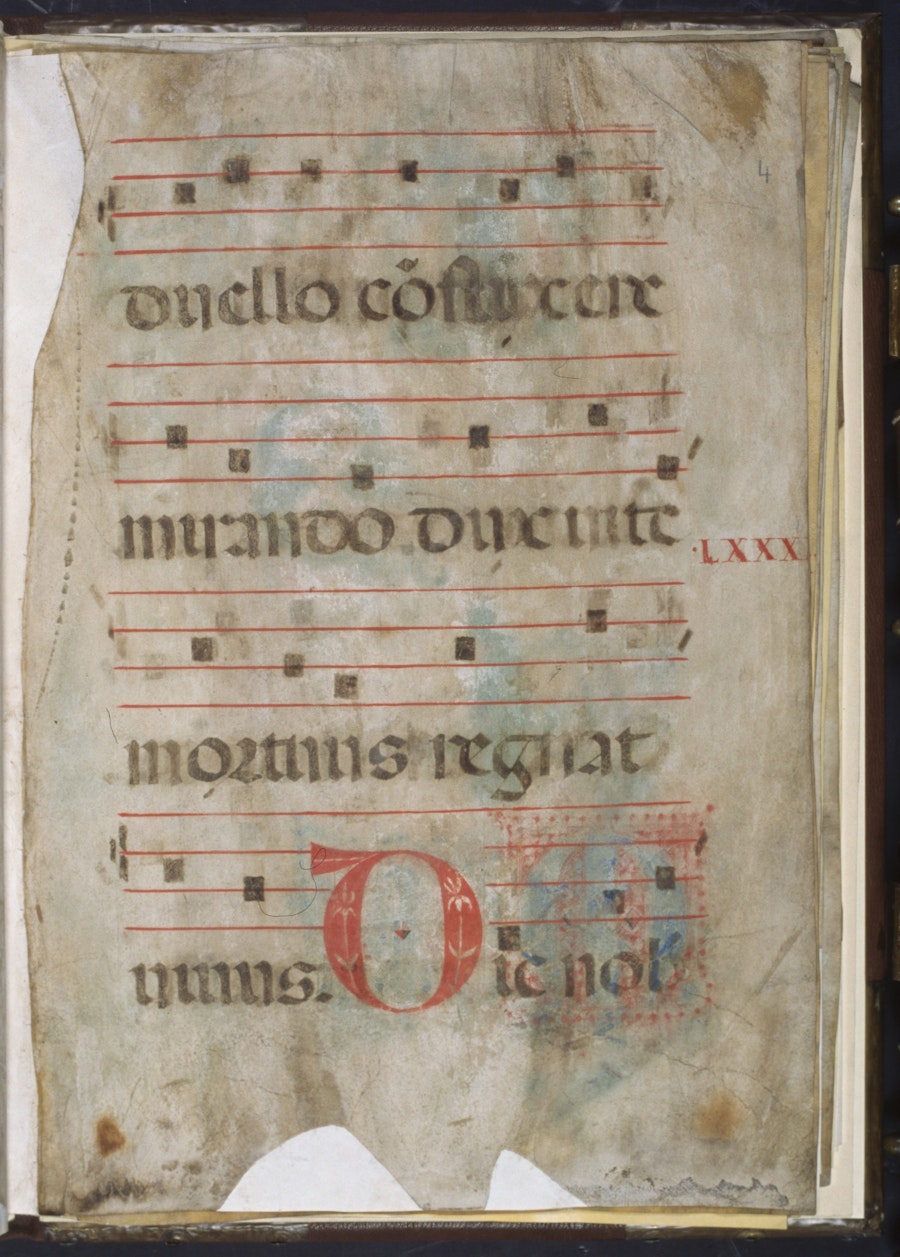 4
duello cõflixere
mirando dux uite
·LXXX
mortuus regnat
uiuus. Dic nob